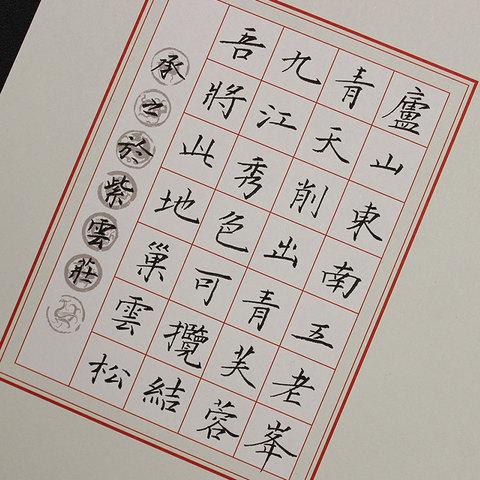 廬山東南五老峯
青天削出青芙蓉
九江秀色可攬結
吾將此地巢雲松
承之於紫雲莊